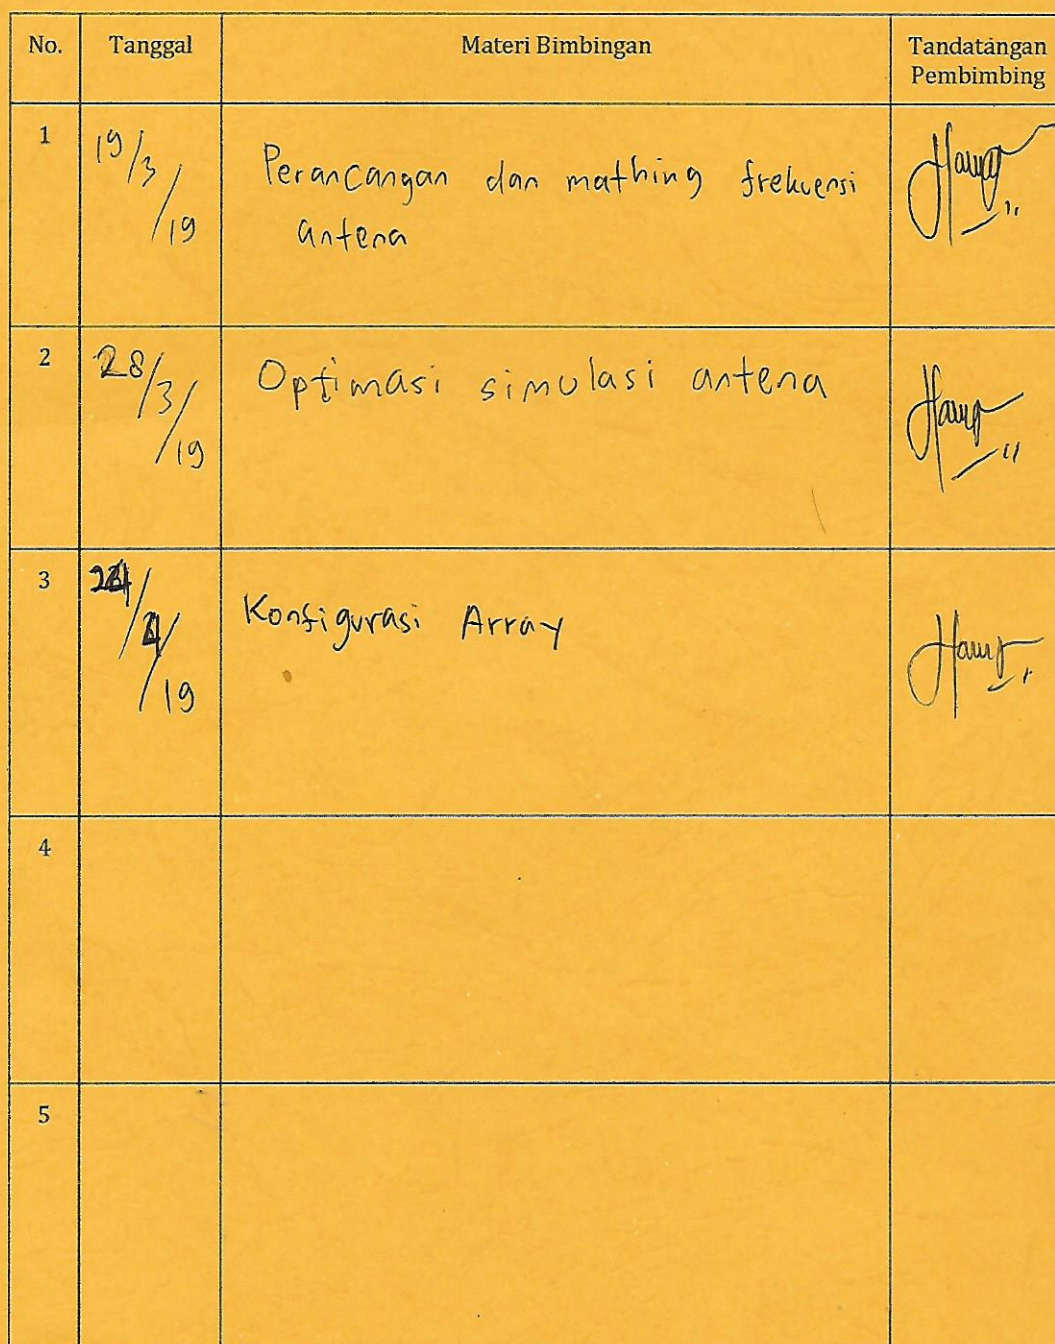 No. Tanggal Materi Bimbingan Tandatangan
Pembimbing
1 19/3/19 Perancangan dan mathing frekuensi
antena
2 28/3/19 Optimasi simulasi antena
3 /19 Konfigurasi Array
4
5